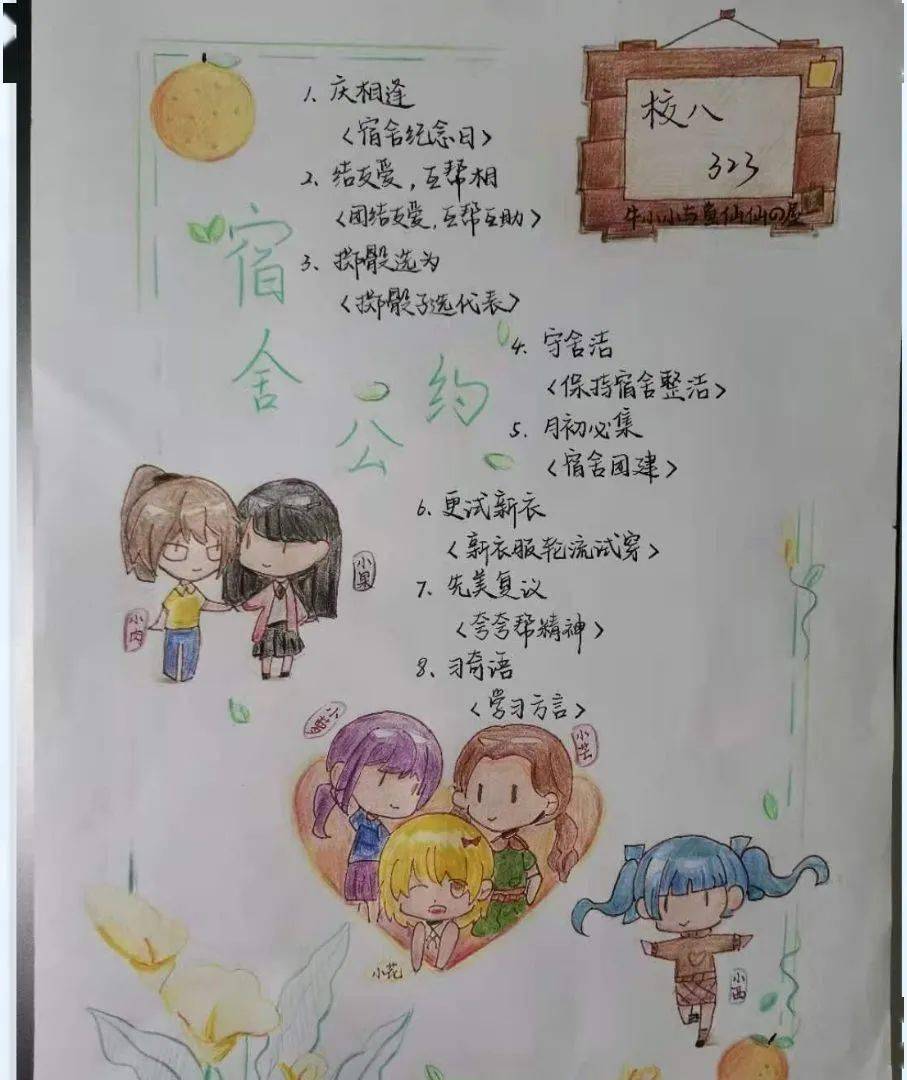 校八
323
牛小小与鱼仙仙の屋
宿舍公约
1、庆相逢
<宿舍纪念日>
2、结友爱,互帮相
<团结友爱,互帮互助>
3、掷骰选为
<掷骰子选代表>
4、守舍洁
<保持宿舍整洁>
5、月初必集
<宿舍团建>
6、更试新衣
<新衣服轮流试穿>
7、先美复议
<夸夸帮精神>
8、习奇语
<学习方言>
小果
小芸
小花
小西